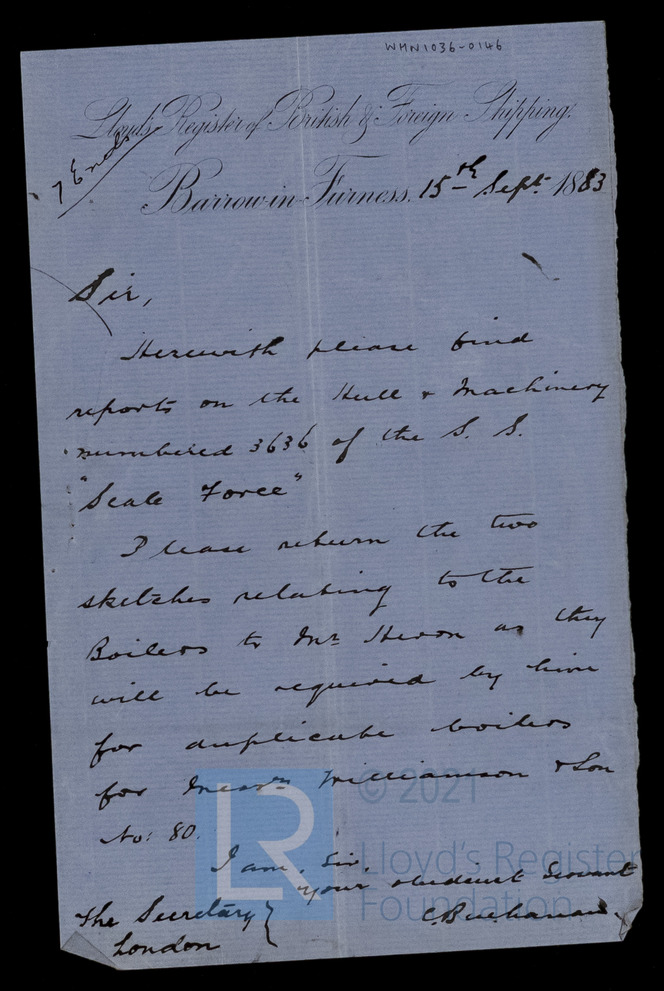 WHN1036-0146
Lloyd's Register of British & Foreign Shipping.
7 Encls
Barrow-in-Furness. 15th Sept. 1883
Sir,
Herewith please find
reports on the Hull & Machinery
numbered 3636 of the S. S.
"Scale Force"
Please return the two
sketches relating to the
Boilers to Mr. Heron as they
will be required by him
for duplicate boilers
for Messrs Williamson & Son
No: 80.
I am, Sir,
your obedient Servant
C. Buchanan.
The Secretary }
London
© 2021
LR
Lloyd's Register
Foundation